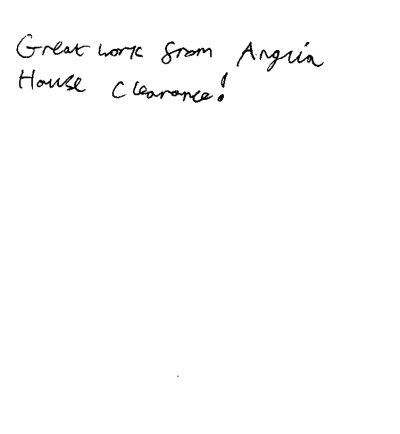 Great work from Anguia
House Clearance!